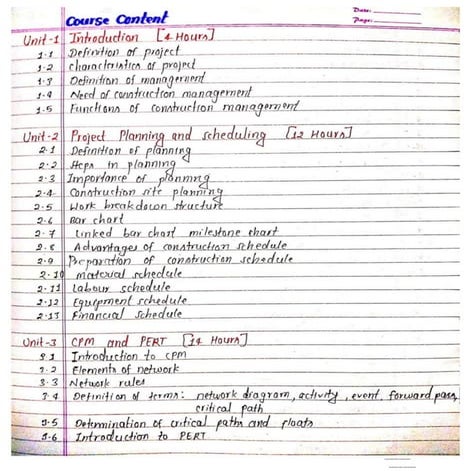 Date:
Page:
Course Content
Unit-1 Introduction [4 Hours]
1.1 Definition of project
1.2 characteristics of project
1.3 Definition of management
1.4 Need of construction management
1.5 Functions of construction management
Unit-2 Project Planning and scheduling [12 Hours]
2.1 Definition of planning
2.2 Steps in planning
2.3 Importance of planning
2.4 Construction site planning
2.5 Work breakdown structure
2.6 Bar chart
2.7 Linked bar chart milestone chart
2.8 Advantages of construction schedule
2.9 Preparation of construction schedule
2.10 material schedule
2.11 Labour schedule
2.12 Equipment schedule
2.13 Financial schedule
Unit-3 CPM and PERT [14 Hours]
3.1 Introduction to CPM
3.2 Elements of network
3.3 Network rules
3.4 Definition of terms: network diagram, activity, event, forward pass,
critical path
3.5 Determination of critical paths and floats
3.6 Introduction to PERT